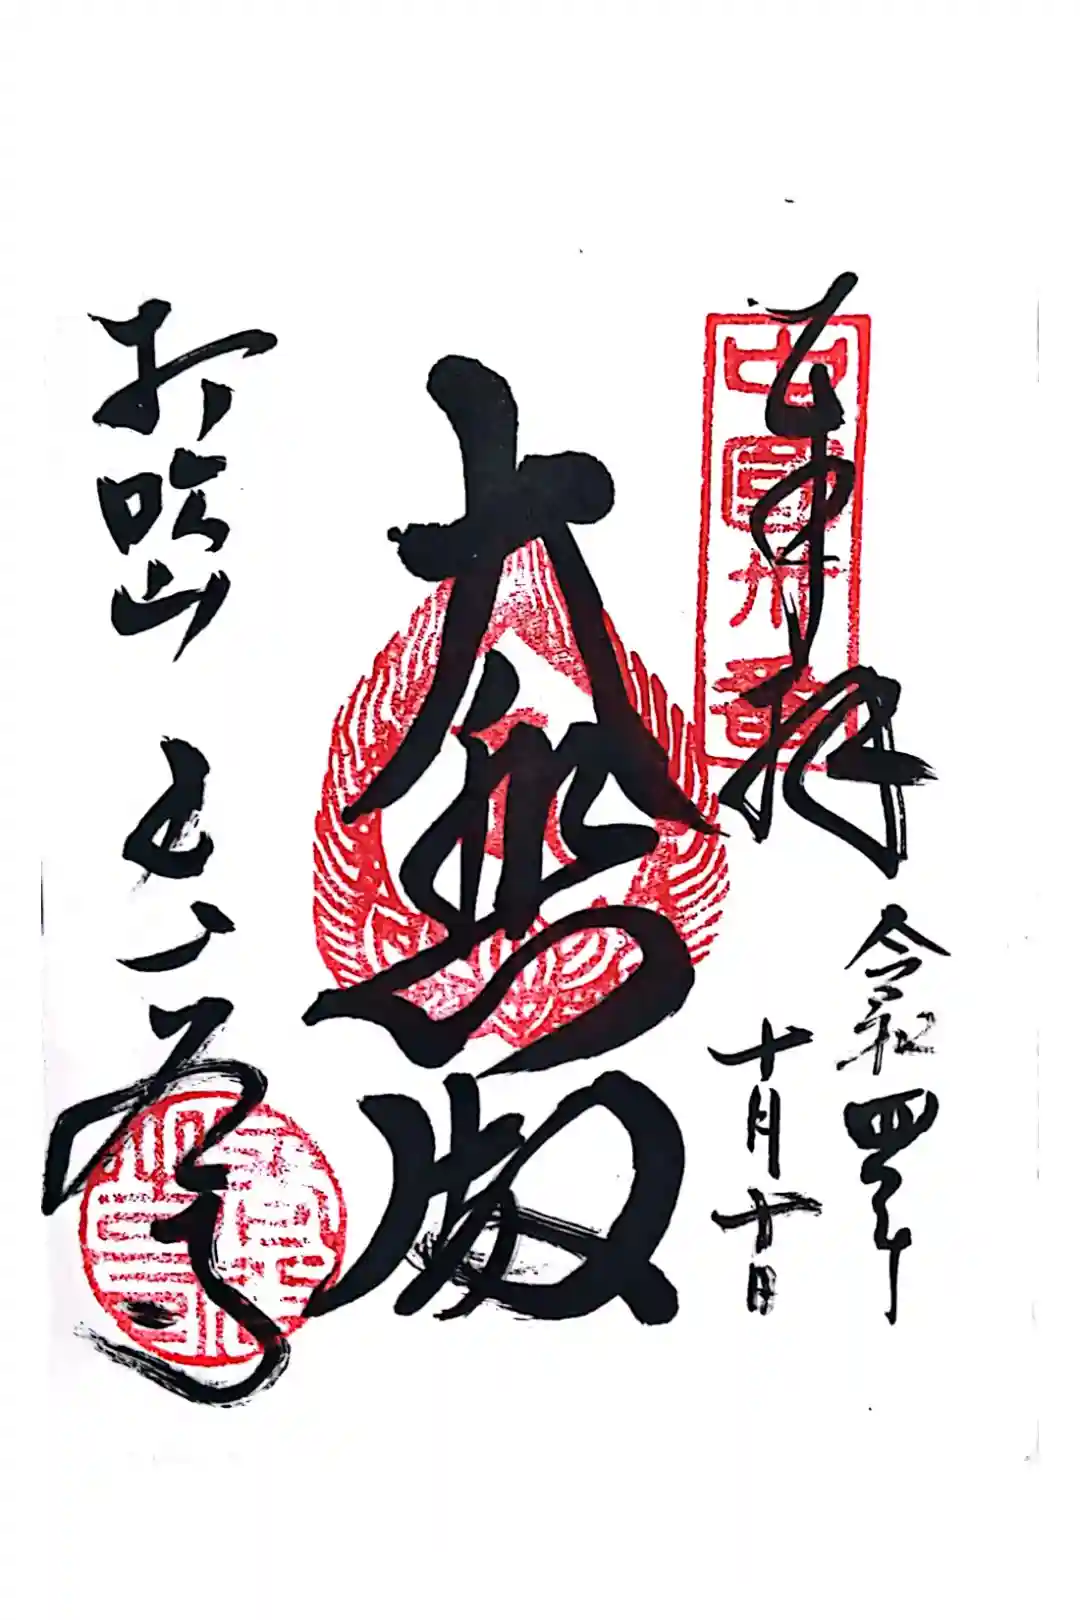 中国卅番
奉拝
令和四年
十月十日
大悲殿
打吹山 長谷寺